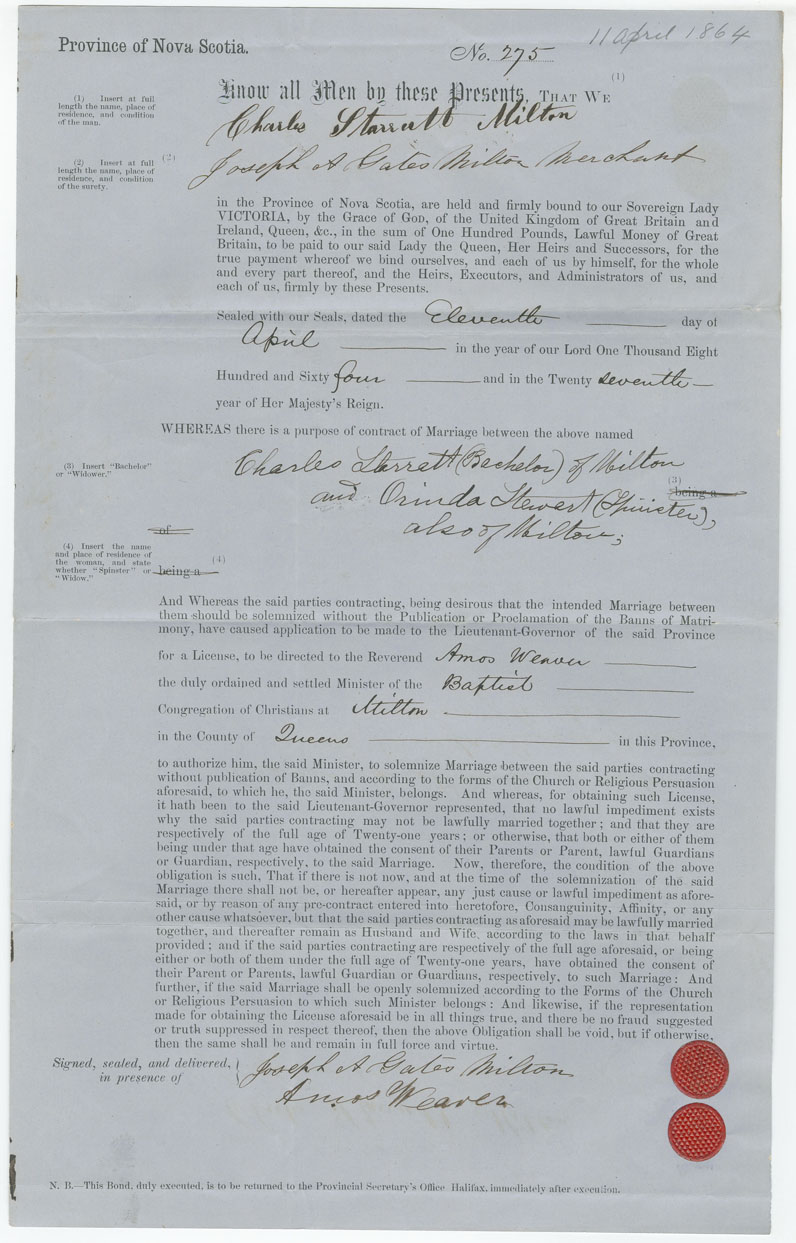 11 April 1864
Province of Nova Scotia.
No. 275
Know all Men by these Presents, THAT WE (1)
(1) Insert at full
length the name, place of
residence, and condition
of the man.
Charles Starratt Milton
(2) Insert at full
length the name, place of
residence, and condition
of the surety.
(2)
Joseph A Gates Milton Merchant
in the Province of Nova Scotia, are held and firmly bound to our Sovereign Lady
VICTORIA, by the Grace of God, of the United Kingdom of Great Britain and
Ireland, Queen, &c., in the sum of One Hundred Pounds, Lawful Money of Great
Britain, to be paid to our said Lady the Queen, Her Heirs and Successors, for the
true payment whereof we bind ourselves, and each of us by himself, for the whole
and every part thereof, and the Heirs, Executors, and Administrators of us, and
each of us, firmly by these Presents.
Sealed with our Seals, dated the Eleventh day of
April in the year of our Lord One Thousand Eight
Hundred and Sixty four and in the Twenty seventh
year of Her Majesty's Reign.
WHEREAS there is a purpose of contract of Marriage between the above named
(3) Insert "Bachelor"
or "Widower."
Charles Starratt (Bachelor) of Milton
(3)
being a
and Orinda Stewart (Spinster),
also of Milton;
of
(4) Insert the name
and place of residence of
the woman, and state
whether "Spinster" or
"Widow."
being a (4)
And Whereas the said parties contracting, being desirous that the intended Marriage between
them should be solemnized without the Publication or Proclamation of the Banns of Matri-
mony, have caused application to be made to the Lieutenant-Governor of the said Province
for a License, to be directed to the Reverend Amos Weaver
the duly ordained and settled Minister of the Baptist
Congregation of Christians at Milton
in the County of Queens in this Province,
to authorize him, the said Minister, to solemnize Marriage between the said parties contracting
without publication of Banns, and according to the forms of the Church or Religious Persuasion
aforesaid, to which he, the said Minister, belongs. And whereas, for obtaining such License,
it hath been to the said Lieutenant-Governor represented, that no lawful impediment exists
why the said parties contracting may not be lawfully married together; and that they are
respectively of the full age of Twenty-one years; or otherwise, that both or either of them
being under that age have obtained the consent of their Parents or Parent, lawful Guardians
or Guardian, respectively, to the said Marriage. Now, therefore, the condition of the above
obligation is such, That if there is not now, and at the time of the solemnization of the said
Marriage there shall not be, or hereafter appear, any just cause or lawful impediment as afore-
said, or by reason of any pre-contract entered into heretofore, Consanguinity, Affinity, or any
other cause whatsoever, but that the said parties contracting as aforesaid may be lawfully married
together, and thereafter remain as Husband and Wife, according to the laws in that behalf
provided; and if the said parties contracting are respectively of the full age aforesaid, or being
either or both of them under the full age of Twenty-one years, have obtained the consent of
their Parent or Parents, lawful Guardian or Guardians, respectively, to such Marriage: And
further, if the said Marriage shall be openly solemnized according to the Forms of the Church
or Religious Persuasion to which such Minister belongs: And likewise, if the representation
made for obtaining the License aforesaid be in all things true, and there be no fraud suggested
or truth suppressed in respect thereof, then the above Obligation shall be void, but if otherwise,
then the same shall be and remain in full force and virtue.
Signed, sealed, and delivered,
in presence of
Joseph A Gates Milton
Amos Weaver
N. B.—This Bond, duly executed, is to be returned to the Provincial Secretary's Office Halifax, immediately after execution.